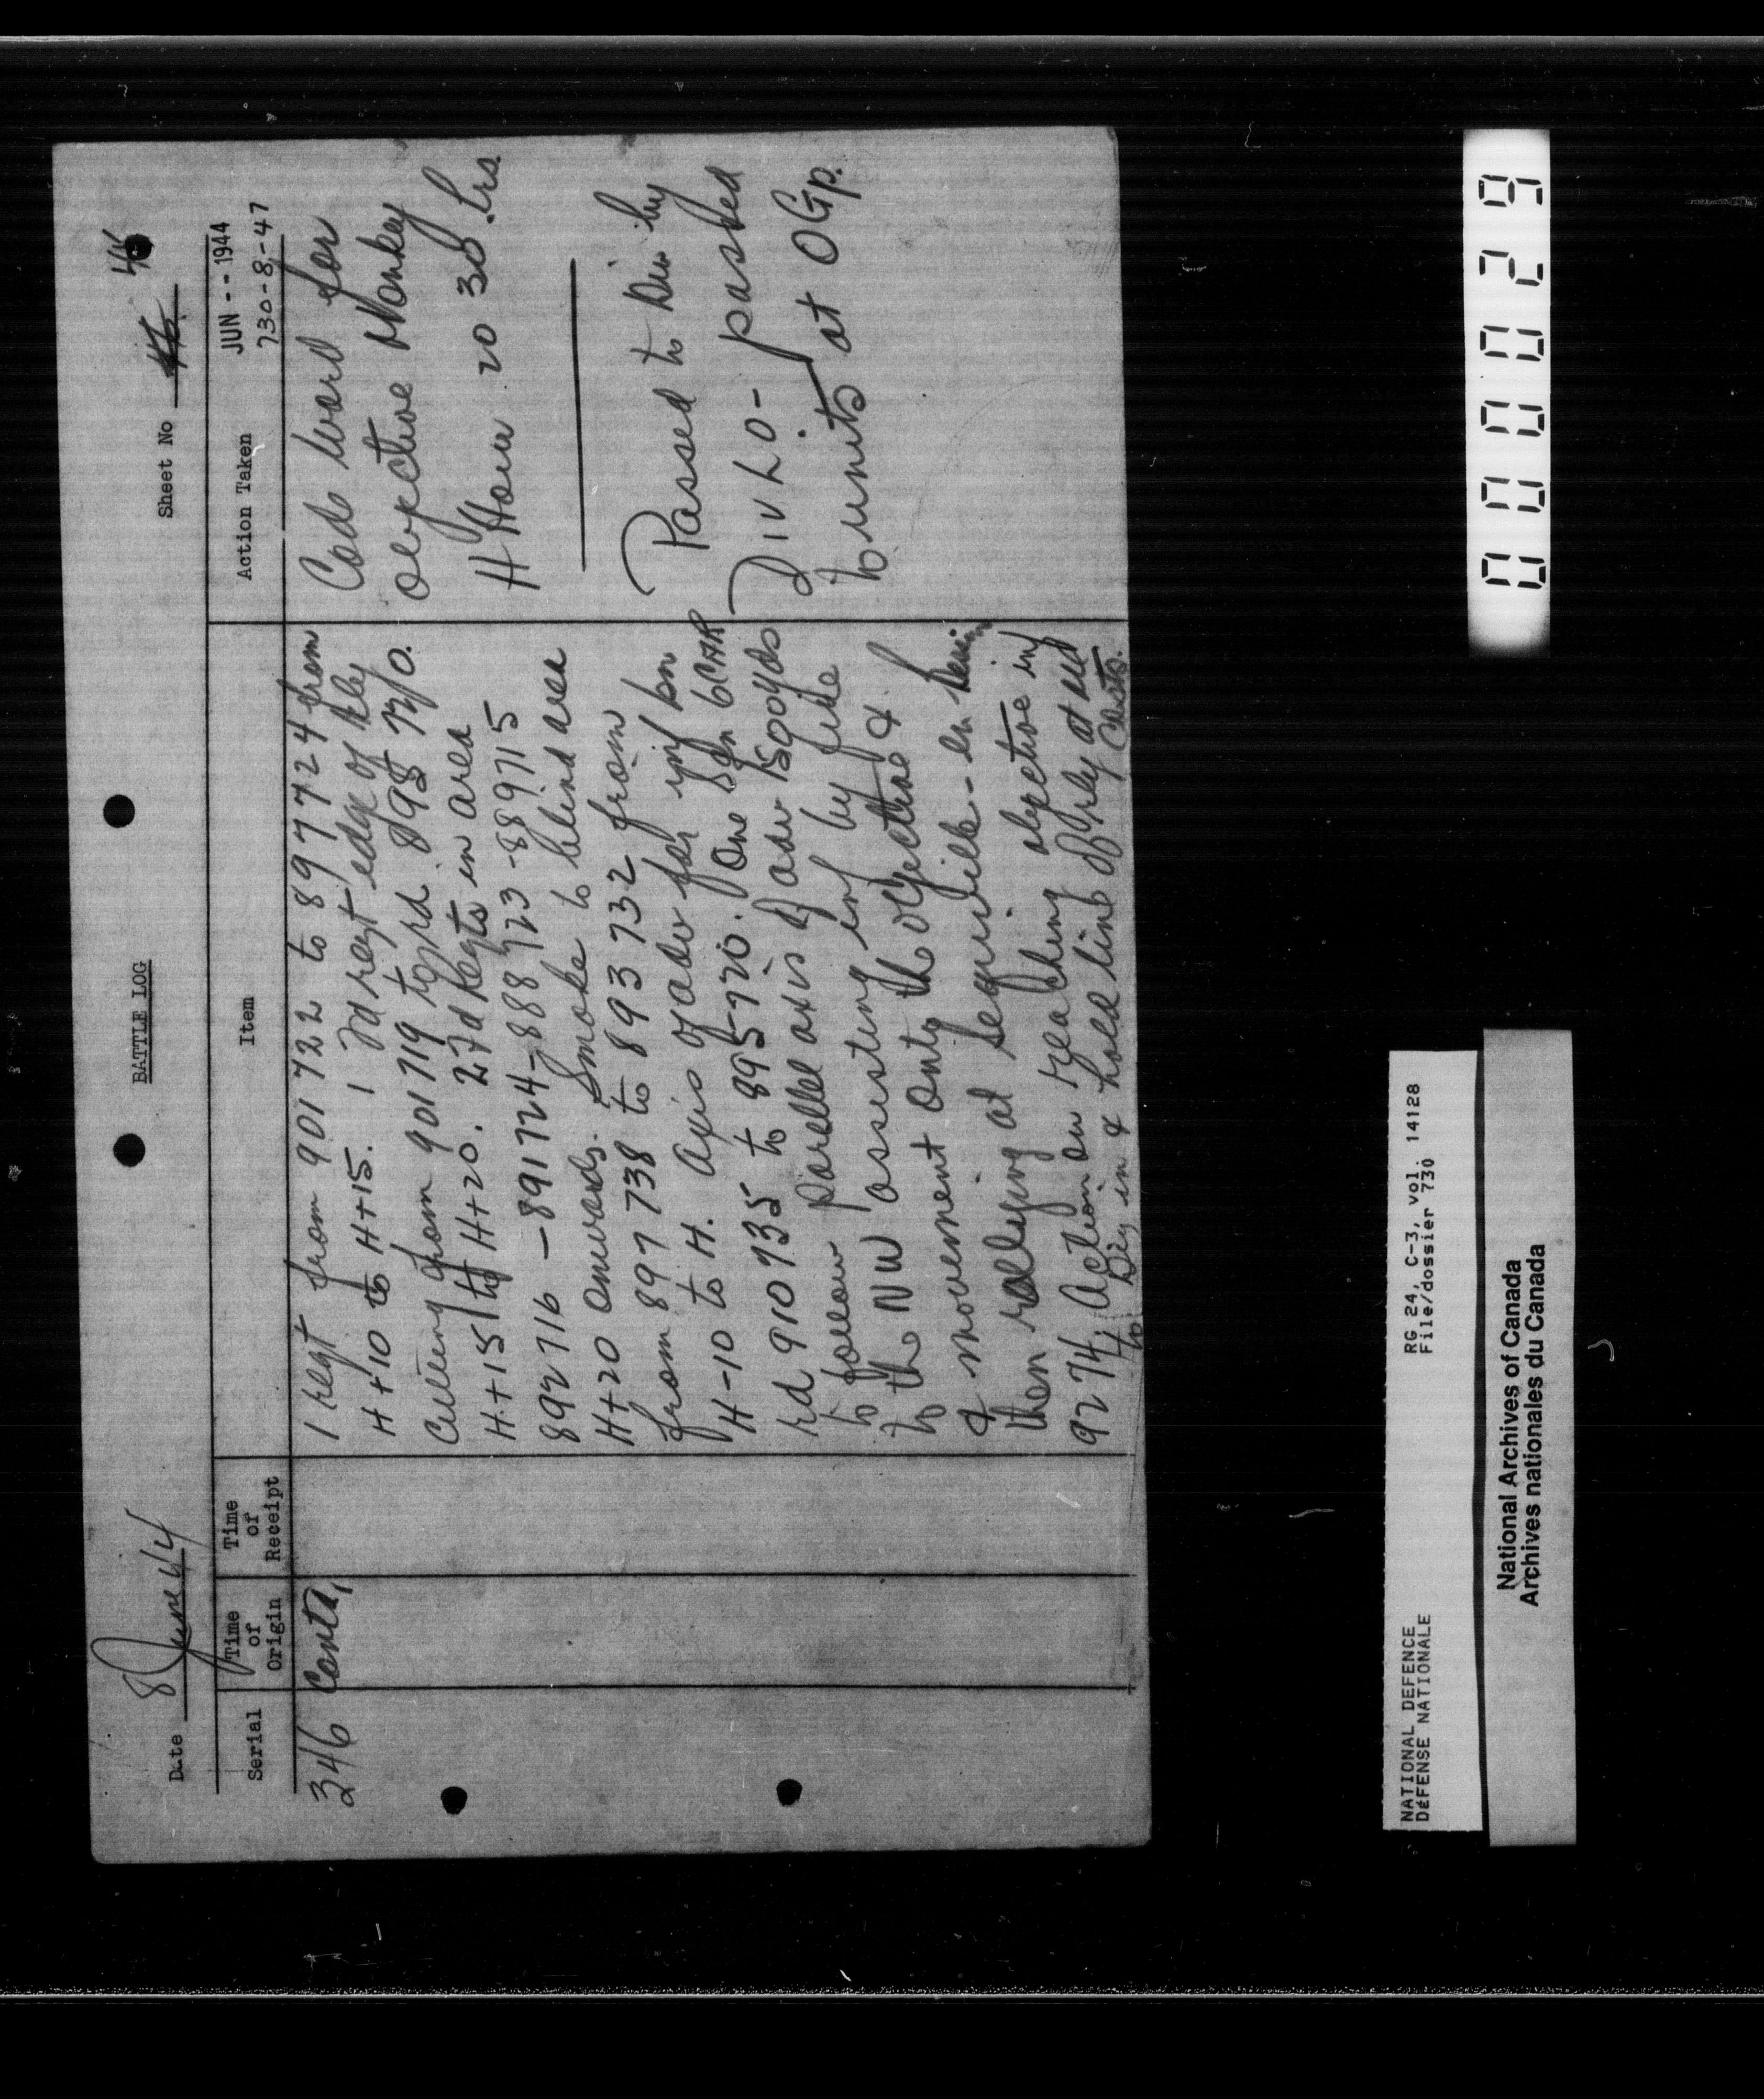 Date 8 June 44
BATTLE LOG
Sheet No 46
JUN -- 1944
730-8-47
Serial
Time of Origin
Time of Receipt
Item
Action Taken
346
Contd,
1 regt from 901722 to 897724 from
H+10 to H+15. 1 Fd regt edge of rly
culling from 901719 to rd 898
H+15 to H+20. 2 Fd Regts in area
892716 - 891724 - 888723 - 889715
H+20 onwards. Smoke to blind area
from 897738 to 893732 from
H-10 to H. Axis of adv for inf bn
rd 910735 to 895720. One Sqn 6 CAR
to follow parallel axis of adv 1500 yds
to the NW assisting inf by fire
& movement onto the objective &
then rallying at Sequeville-en-Bessin
9274. Action on reaching objective inf
to Dig in & hold line of rly at all Costs.
Code Word for
objective Monkey
H Hour 20 30 hrs
Passed to Div by
Div LO - passed
to units at OGp.
0000029
NATIONAL DEFENCE
DÉFENSE NATIONALE
RG 24, C-3, vol. 14128
File/dossier 730
National Archives of Canada
Archives nationales du Canada